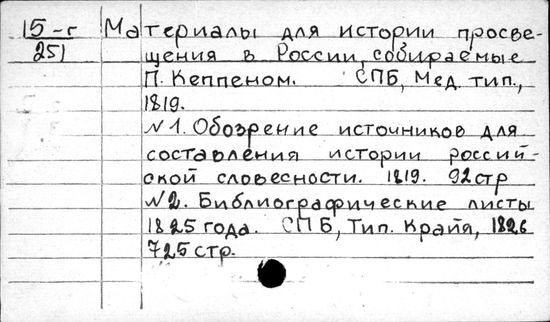 15-г Материалы для истории просве-
251 щения в России, собираемые
П. Кеппеном. СПБ, Мед. тип.,
1819.
№1. Обозрение источников для
составления истории россий-
ской словесности. 1819. 92стр
№2. Библиографические листы
1825 года. СПБ, Тип. Крайя, 1826
725 стр.